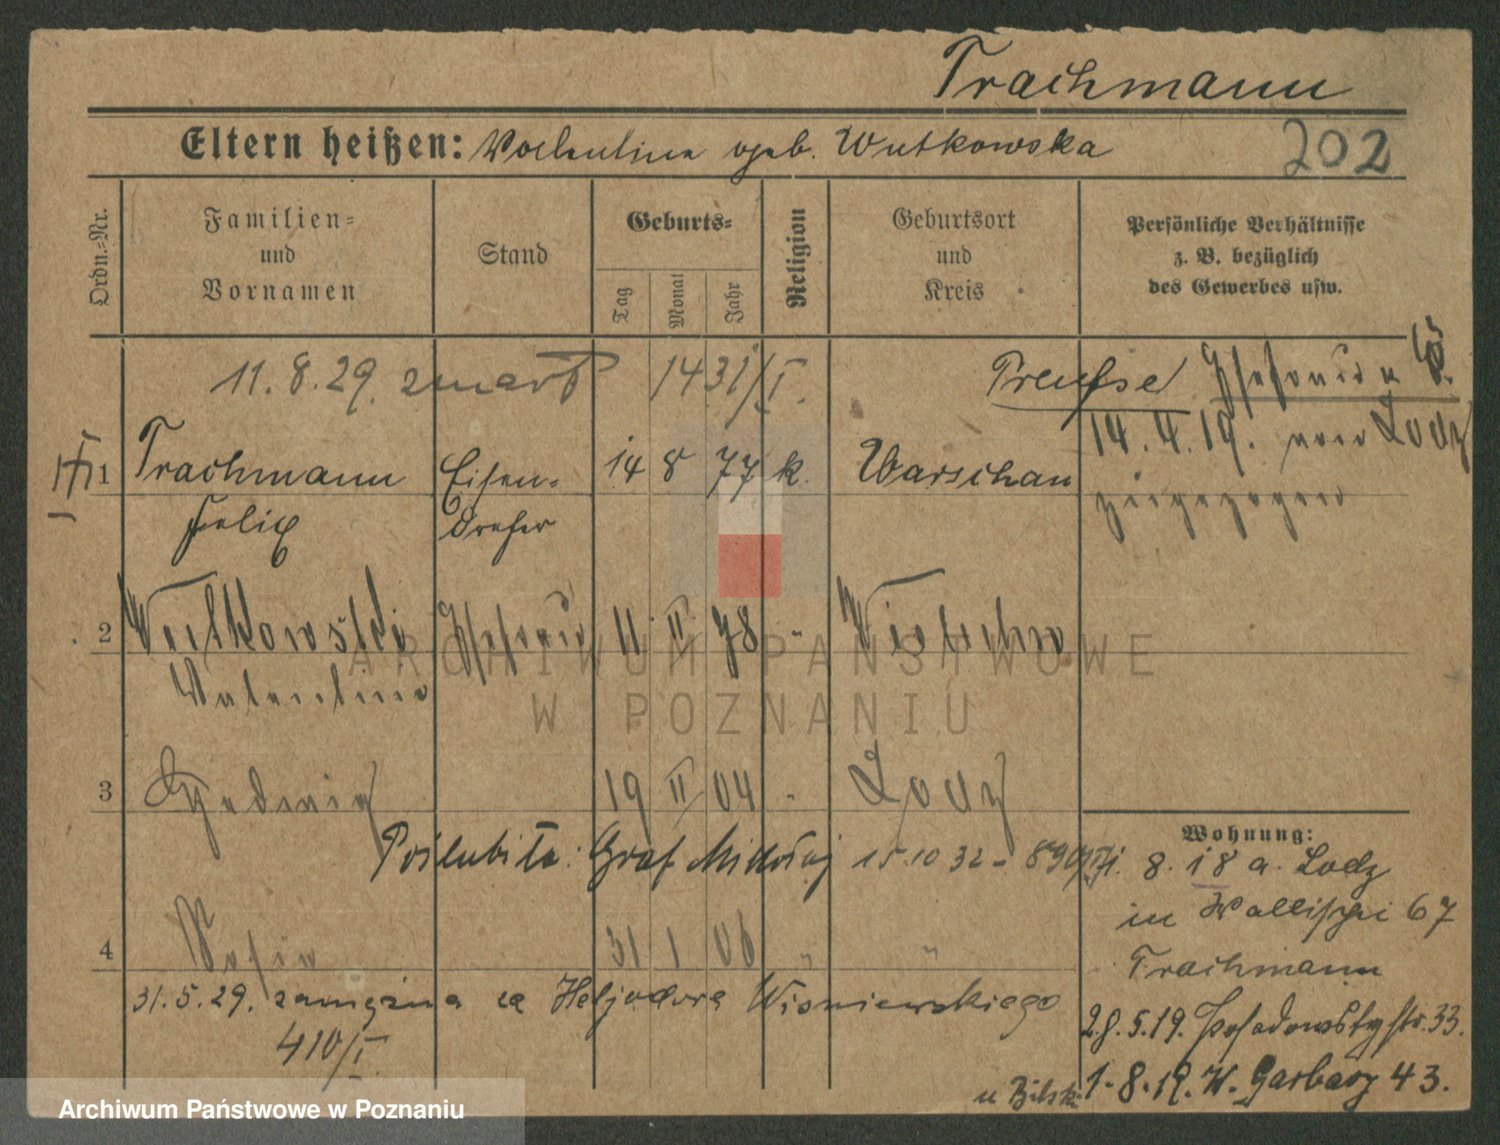 Trachmann
Eltern heißen: Valentine geb. Wutkowska
202
Ordn.-Nr.
Familien-
und
Vornamen
Stand
Geburts-
Tag
Monat
Jahr
Religion
Geburtsort
und
Kreis
Persönliche Verhältnisse
z. B. bezüglich
des Gewerbes usw.
11. 8. 29. zmarł 1431/I.
Preuße
14. 4. 19. von Lodz
zugezogen
1 Trachmann Eisen- 14 8 77 k. Warschau
Felix dreher
2 Ehefrau 11 II 78 "
Valentine
3 Hedwig 19 II 04 " Lodz
Poślubiła: Graf Mikołaj 15.10 32 - 890/II.
4 Sofie 31 1 06 " "
31. 5. 29. zamężna za Heljodora Wiśniewskiego
410/I.
Wohnung:
8. 18 a. Lodz
in Wallischei 67
Trachmann
28. 5. 19. Posadowskystr. 33.
1. 8. 19. W. Garbary 43.
ARCHIWUM PAŃSTWOWE
W POZNANIU
Archiwum Państwowe w Poznaniu